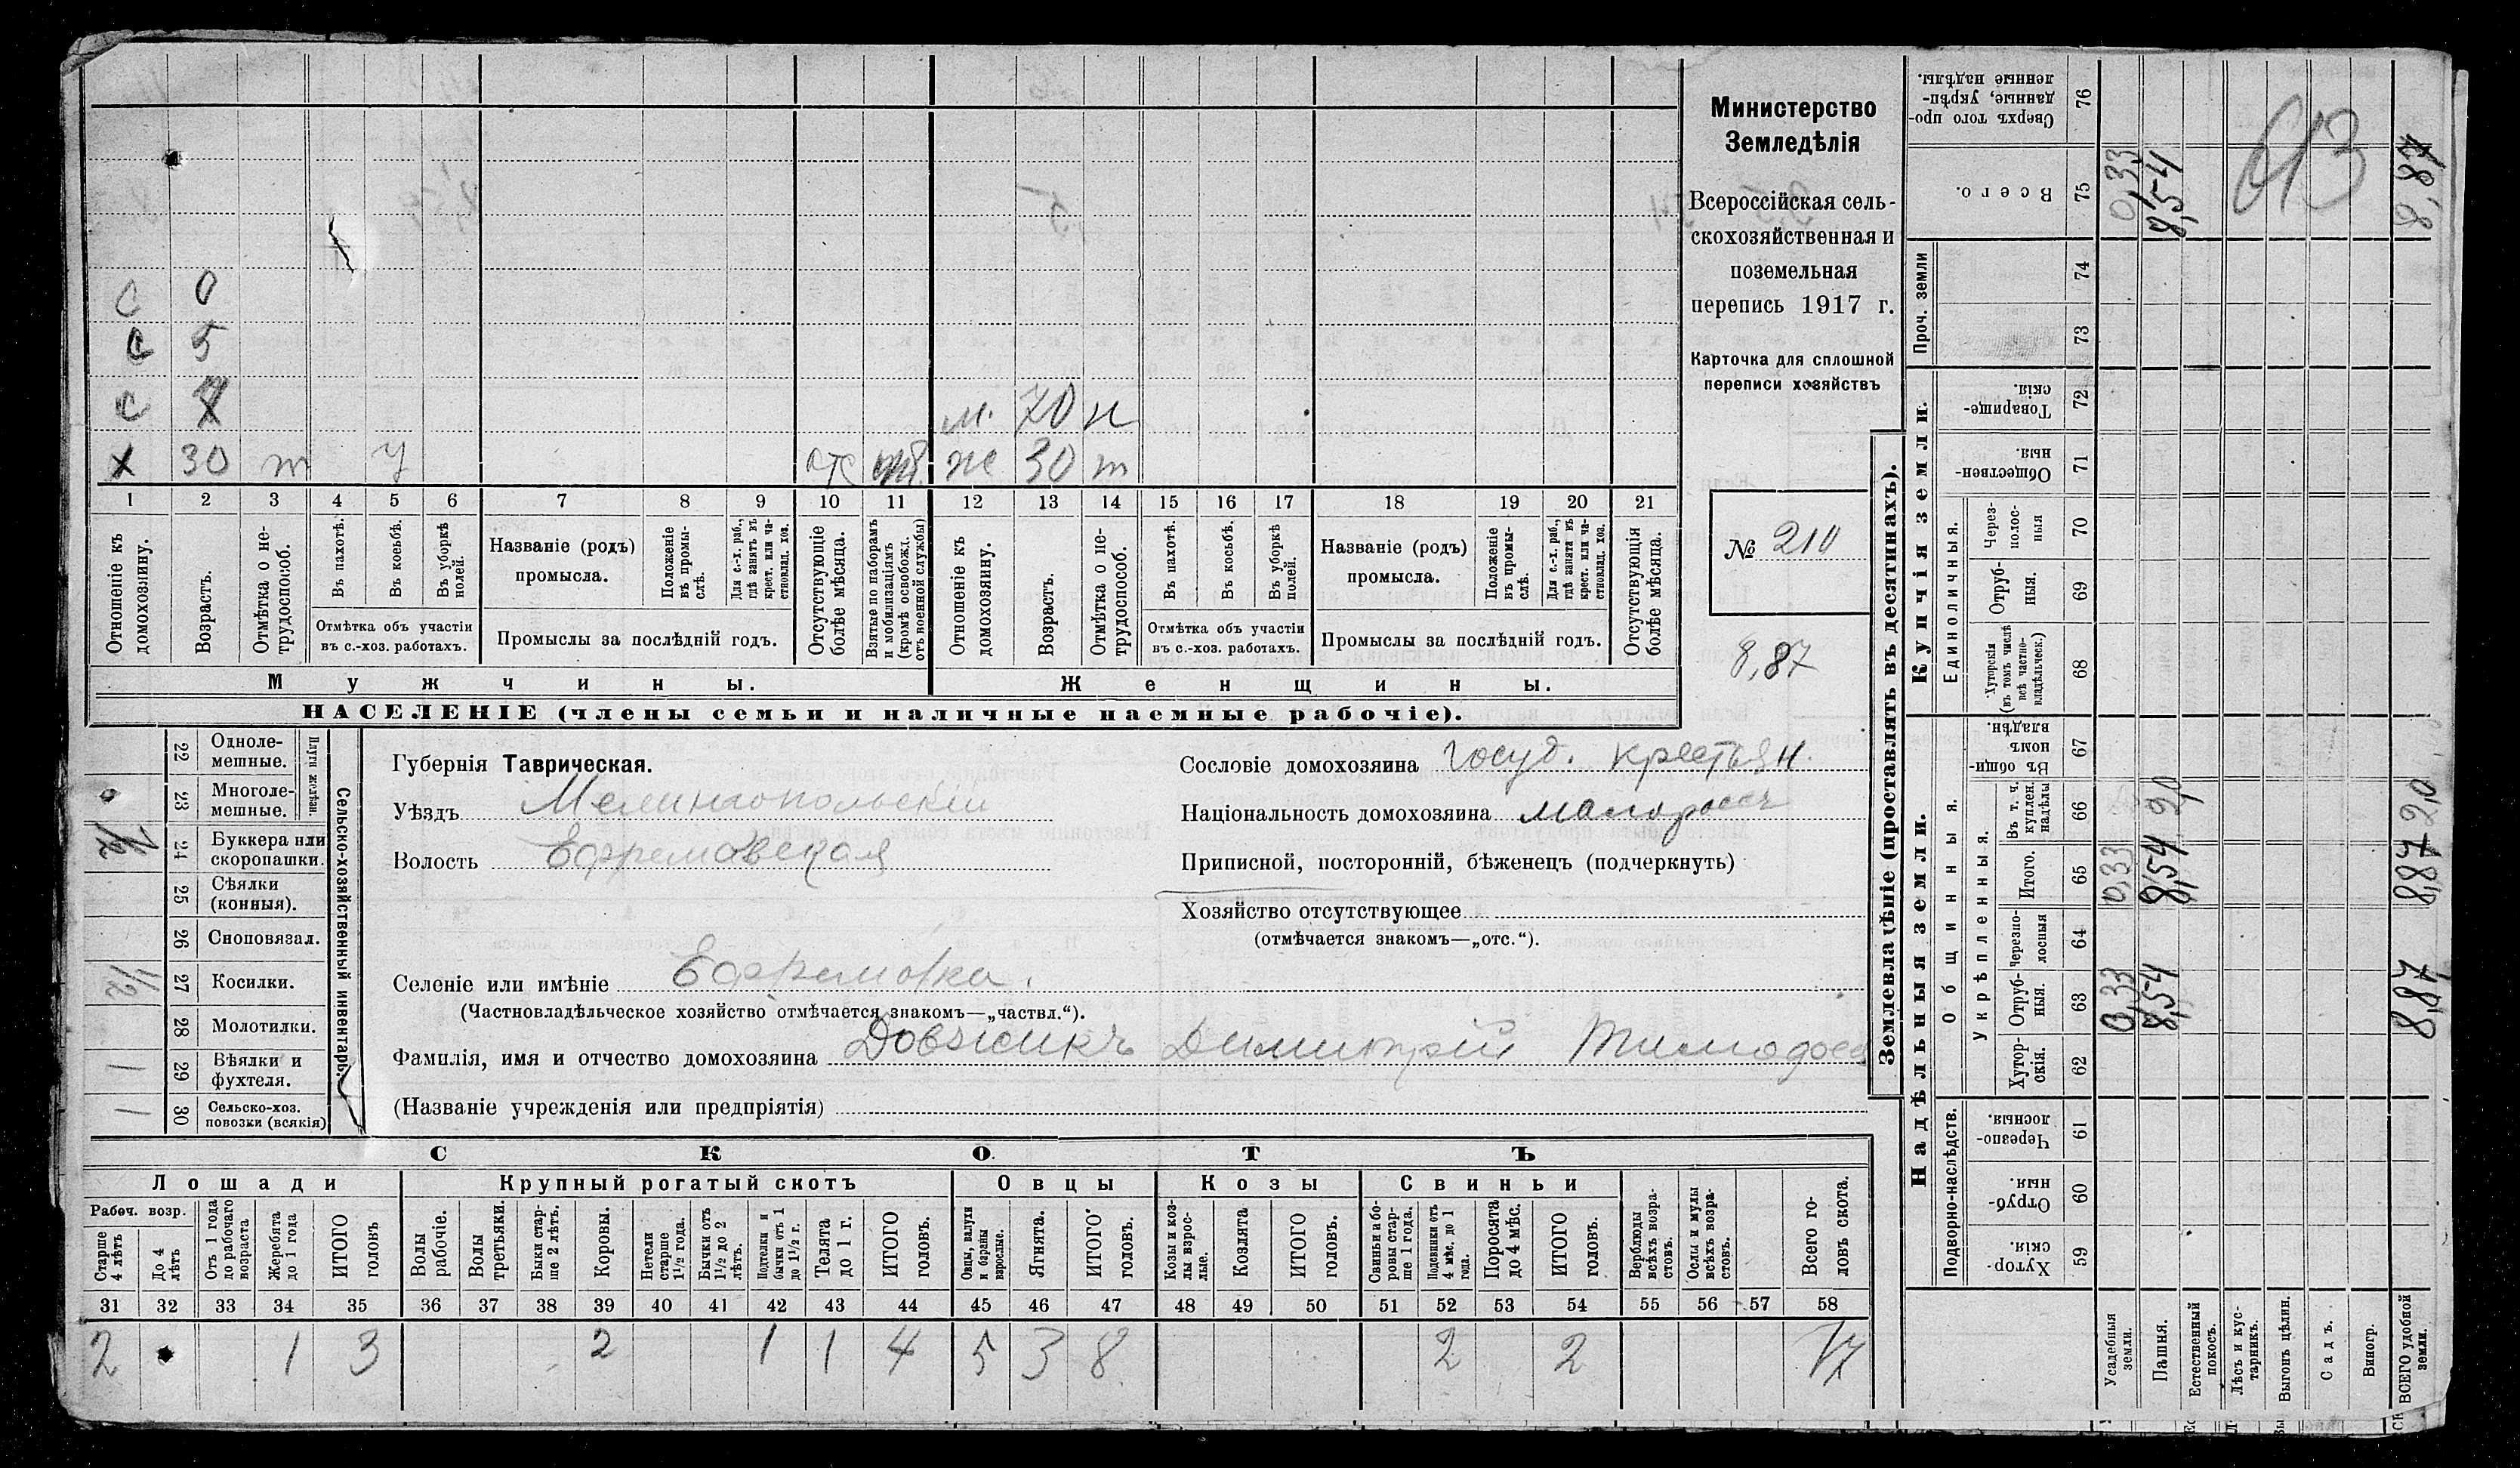 Министерство
Земледѣлія
Всероссійская сель-
скохозяйственная и
поземельная
перепись 1917 г.
Карточка для сплошной
переписи хозяйствъ
№ 210
8,87
с 0
с 5
с
м. 70 н
х 30 т у отс ж 30 т
1 2 3 4 5 6 7 8 9 10 11 12 13 14 15 16 17 18 19 20 21
Отношеніе къ домохозяину.
Возрастъ.
Отмѣтка о не-трудоспособ.
Въ пахотѣ.
Въ косьбѣ.
Въ уборкѣ полей.
Отмѣтка объ участіи
въ с.-хоз. работахъ.
Названіе (родъ)
промысла.
Положеніе въ промы-слѣ.
Для с.-х. раб., гдѣ занятъ въ крест. или ча-стновлад. хоз.
Промыслы за послѣдній годъ.
Отсутствующіе болѣе мѣсяца.
Взятые по наборамъ и мобилизаціямъ (кромѣ освобожд. отъ военной службы)
Отношеніе къ домохозяину.
Возрастъ.
Отмѣтка о не-трудоспособ.
Въ пахотѣ.
Въ косьбѣ.
Въ уборкѣ полей.
Отмѣтка объ участіи
въ с.-хоз. работахъ.
Названіе (родъ)
промысла.
Положеніе въ промы-слѣ.
Для с.-х. раб., гдѣ занята въ крест. или ча-стновлад. хоз.
Промыслы за послѣдній годъ.
Отсутствующія болѣе мѣсяца.
Мужчины.
Женщины.
НАСЕЛЕНІЕ (члены семьи и наличные наемные рабочіе).
Сельско-хозяйственный инвентарь.
Плуги желѣзн.
22 Однолемешные.
23 Многолемешные.
24 Буккера или скоропашки.
25 Сѣялки (конныя).
26 Сноповязал.
27 Косилки. 1/2
28 Молотилки.
29 Вѣялки и фухтеля. 1
30 Сельско-хоз. повозки (всякія) 1
Губернія Таврическая.
Уѣздъ Мелитопольскій
Волость Ефремовская
Сословіе домохозяина госуд. крестьян.
Національность домохозяина малороссъ
Приписной, посторонній, бѣженецъ (подчеркнуть)
Хозяйство отсутствующее
(отмѣчается знакомъ—„отс.“).
Селеніе или имѣніе Ефремовка.
(Частновладѣльческое хозяйство отмѣчается знакомъ—„частвл.“).
Фамилія, имя и отчество домохозяина Довжикъ Димитрій
(Названіе учрежденія или предпріятія)
СКОТЪ
Лошади
Крупный рогатый скотъ
Овцы
Козы
Свиньи
Рабоч. возр.
Старше 4 лѣтъ
До 4 лѣтъ
Отъ 1 года до рабочаго возраста
Жеребята до 1 года
ИТОГО головъ
Волы рабочіе.
Волы третьяки.
Быки стар-ше 2 лѣтъ.
Коровы.
Нетели старше 1½ года.
Бычки отъ 1½ до 2 лѣтъ.
Подтелки и бычки отъ 1 до 1½ г.
Телята до 1 г.
ИТОГО головъ.
Овцы, валухи и бараны взрослые.
Ягнята.
ИТОГО головъ.
Козы и коз-лы взрос-лые.
Козлята
ИТОГО головъ.
Свиньи и бо-ровы стар-ше 1 года.
Подсвинки отъ 4 мѣс. до 1 года.
Поросята до 4 мѣс.
ИТОГО головъ.
Верблюды всѣхъ возра-стовъ.
Ослы и мулы всѣхъ возра-стовъ.
Всего го-ловъ скота.
31 32 33 34 35 36 37 38 39 40 41 42 43 44 45 46 47 48 49 50 51 52 53 54 55 56 57 58
2 1 3 2 1 1 4 5 3 8 2 2 17
Землевладѣніе (проставлять въ десятинахъ).
Надѣльныя земли.
Купчія земли.
Проч. земли
Подворно-наслѣдств.
Общинныя.
Укрѣпленныя.
Единоличныя.
Хутор-скія. 59
Отруб-ныя. 60
Черезпо-лосныя. 61
Хутор-скія. 62
Отруб-ныя. 63
Черезпо-лосныя 64
Итого. 65
Въ т. ч. куплен. надѣлы 66
Въ общи-номъ владѣн. 67
Хуторскія (въ томъ числѣ всѣ частно-владѣльческ.) 68
Отруб-ныя. 69
Через-полос-ныя 70
Обществен-ныя. 71
Товарище-скія. 72
73
74
Всего. 75
Сверхъ того про-данные, укрѣп-ленные надѣлы. 76
Усадебныя земли. 0,33 0,33 0,33
Пашня. 8,54 8,54 2,0 8,54
Естественный покосъ.
Лѣсъ и кус-тарникъ.
Выгонъ цѣлин.
Садъ.
Виногр.
ВСЕГО удобной земли. 8,87 8,87 2,0 8,87